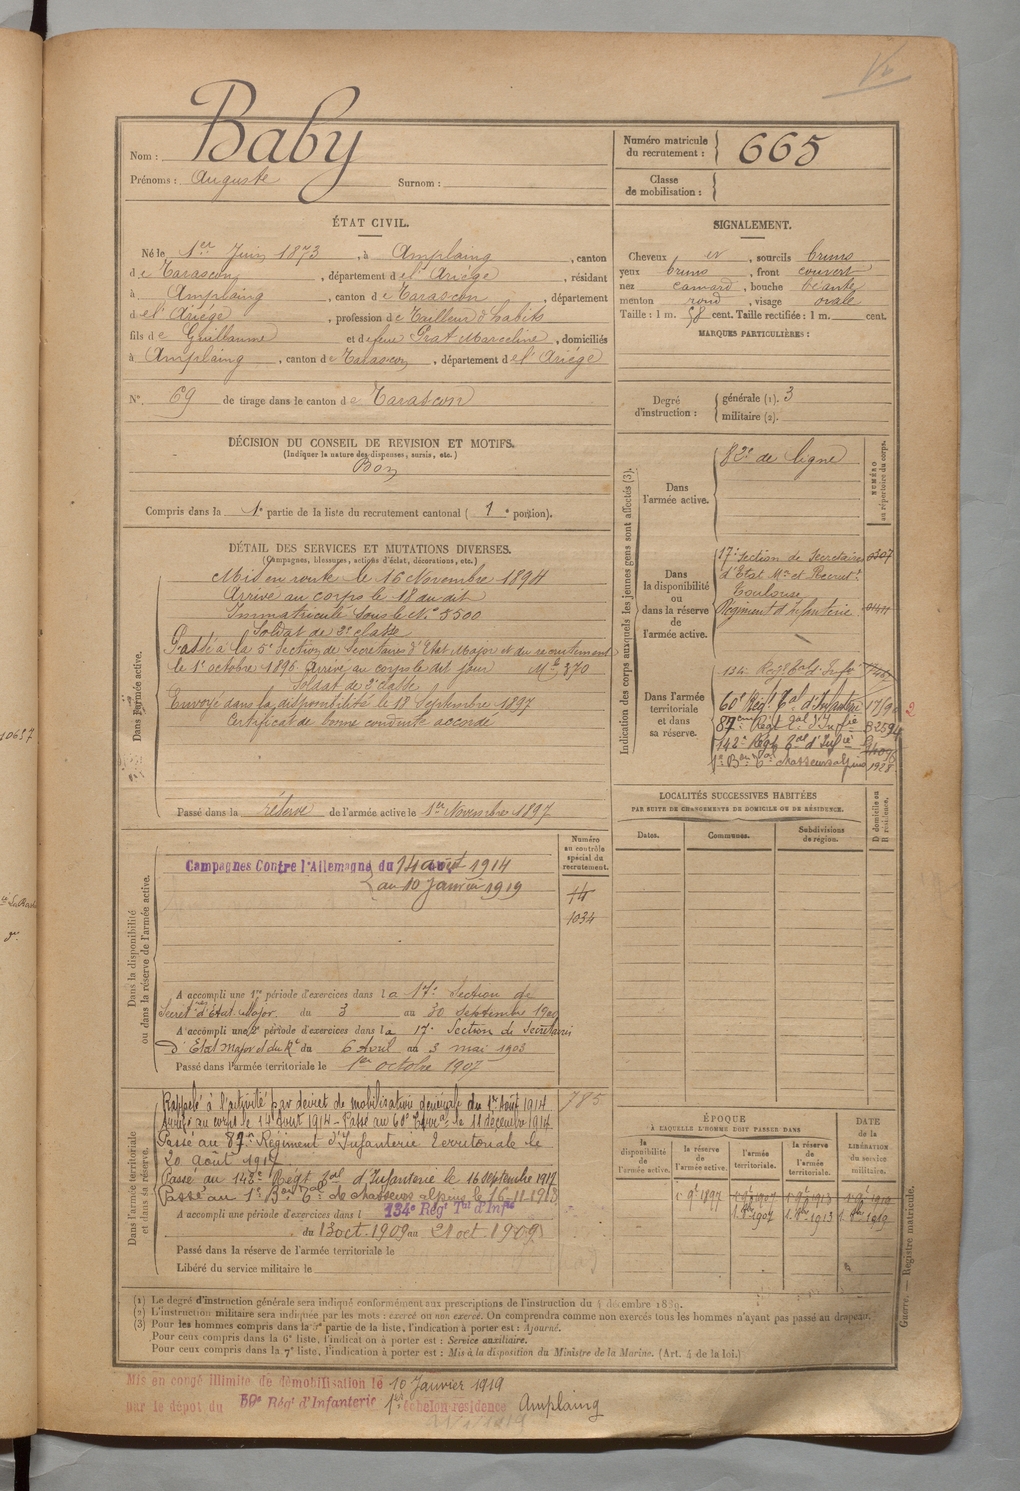 Baby
Nom :
Prénoms : Auguste Surnom :
Numéro matricule du recrutement : 665
Classe de mobilisation :
ÉTAT CIVIL.
Né le 1er Juin 1873, à Amplaing, canton
de Tarascon, département de l'Ariège, résidant
à Amplaing, canton de Tarascon, département
de l'Ariège, profession de Tailleur d'habits
fils de Guillaume et de feue Prat Marceline, domiciliés
à Amplaing, canton de Tarascon, département de l'Ariège
N°. 69 de tirage dans le canton de Tarascon
SIGNALEMENT.
Cheveux et, sourcils bruns
yeux bruns, front couvert
nez camard, bouche béante
menton rond, visage ovale
Taille : 1 m. 58 cent. Taille rectifiée : 1 m. cent.
MARQUES PARTICULIÈRES :
Degré d'instruction : générale (1). 3
militaire (2).
DÉCISION DU CONSEIL DE REVISION ET MOTIFS.
(Indiquer la nature des dispenses, sursis, etc.)
Bon
Compris dans la 1e partie de la liste du recrutement cantonal (1e portion).
DÉTAIL DES SERVICES ET MUTATIONS DIVERSES.
(Campagnes, blessures, actions d'éclat, décorations, etc.)
Dans l'armée active.
Mis en route le 16 Novembre 1894
Arrivé au corps le 18 du dit
Immatriculé sous le N° 5500
Soldat de 2e classe
Passé à la 5e Section de Secrétaire d'Etat Major et du recrutement
le 1er octobre 1896 Arrivé au corps le dit jour Mle 370
Soldat de 2e classe
Envoyé dans la disponibilité le 18 Septembre 1897
Certificat de bonne conduite accordé
Passé dans la réserve de l'armée active le 1er Novembre 1897
Indication des corps auxquels les jeunes gens sont affectés (3).
NUMÉRO au répertoire du corps.
Dans l'armée active.
82e de ligne
Dans la disponibilité ou dans la réserve de l'armée active.
17e Section de Secrétaires
d'Etat Mor et Recrutt
Toulouse
Régiment d'infanterie
Dans l'armée territoriale et dans sa réserve.
134e Régt Tal d'Infie
60e Régt Tal d'Infanterie
87eme Régt Tal d'Infie
142e Régt Tal d'Infie
1er Bon Tal chasseurs alpins 1928
Dans la disponibilité ou dans la réserve de l'armée active.
Numéro au contrôle spécial du recrutement.
Campagnes Contre l'Allemagne du 14 août 1914
au 10 Janvier 1919
44
1034
A accompli une 1re période d'exercices dans la 17e Section de
Secret res d'État-Major. du 3 au 30 Septembre 1900
A accompli une 2e période d'exercices dans la 17e Section de Secrétaires
d'Etat Major et du Rt du 6 Avril au 3 mai 1903
Passé dans l'armée territoriale le 1er octobre 1907
LOCALITÉS SUCCESSIVES HABITÉES
PAR SUITE DE CHANGEMENTS DE DOMICILE OU DE RÉSIDENCE.
Dates. Communes. Subdivisions de région. D domicile ou R résidence.
Dans l'armée territoriale et dans sa réserve.
Rappelé à l'activité par décret de mobilisation générale du 1er Août 1914 785
Arrivé au corps le 14 Août 1914 - Passé au 60e Terral le 11 décembre 1914
Passé au 87e Régiment d'Infanterie Territoriale le
20 août 1917
Passé au 142e Régt Tal d'Infanterie le 16 septembre 1917
Passé au 1er Bon Tal de chasseurs alpins le 16-11-1918
A accompli une période d'exercices dans l 134e Régt Tal d'Infie
du 13 oct. 1909 au 21 oct. 1909
Passé dans la réserve de l'armée territoriale le
Libéré du service militaire le
ÉPOQUE
À LAQUELLE L'HOMME DOIT PASSER DANS
la disponibilité de l'armée active. la réserve de l'armée active. l'armée territoriale. la réserve de l'armée territoriale.
DATE de la LIBÉRATION du service militaire.
1er 9bre 1897 1er 9bre 1907 1er 9bre 1913 1er 9bre 1919
1. 8bre 1907 1. 8bre 1913 1. 8bre 1919
(1) Le degré d'instruction générale sera indiqué conformément aux prescriptions de l'instruction du 4 décembre 1889.
(2) L'instruction militaire sera indiquée par les mots : exercé ou non exercé. On comprendra comme non exercés tous les hommes n'ayant pas passé au drapeau.
(3) Pour les hommes compris dans la 5e partie de la liste, l'indication à porter est : Ajourné.
Pour ceux compris dans la 6e liste, l'indication à porter est : Service auxiliaire.
Pour ceux compris dans la 7e liste, l'indication à porter est : Mis à la disposition du Ministre de la Marine. (Art. 4 de la loi.)
Guerre. — Registre matricule.
Mis en congé illimité de démobilisation le 10 Janvier 1919
par le dépôt du 59e Régt d'Infanterie 1er échelon résidence Amplaing